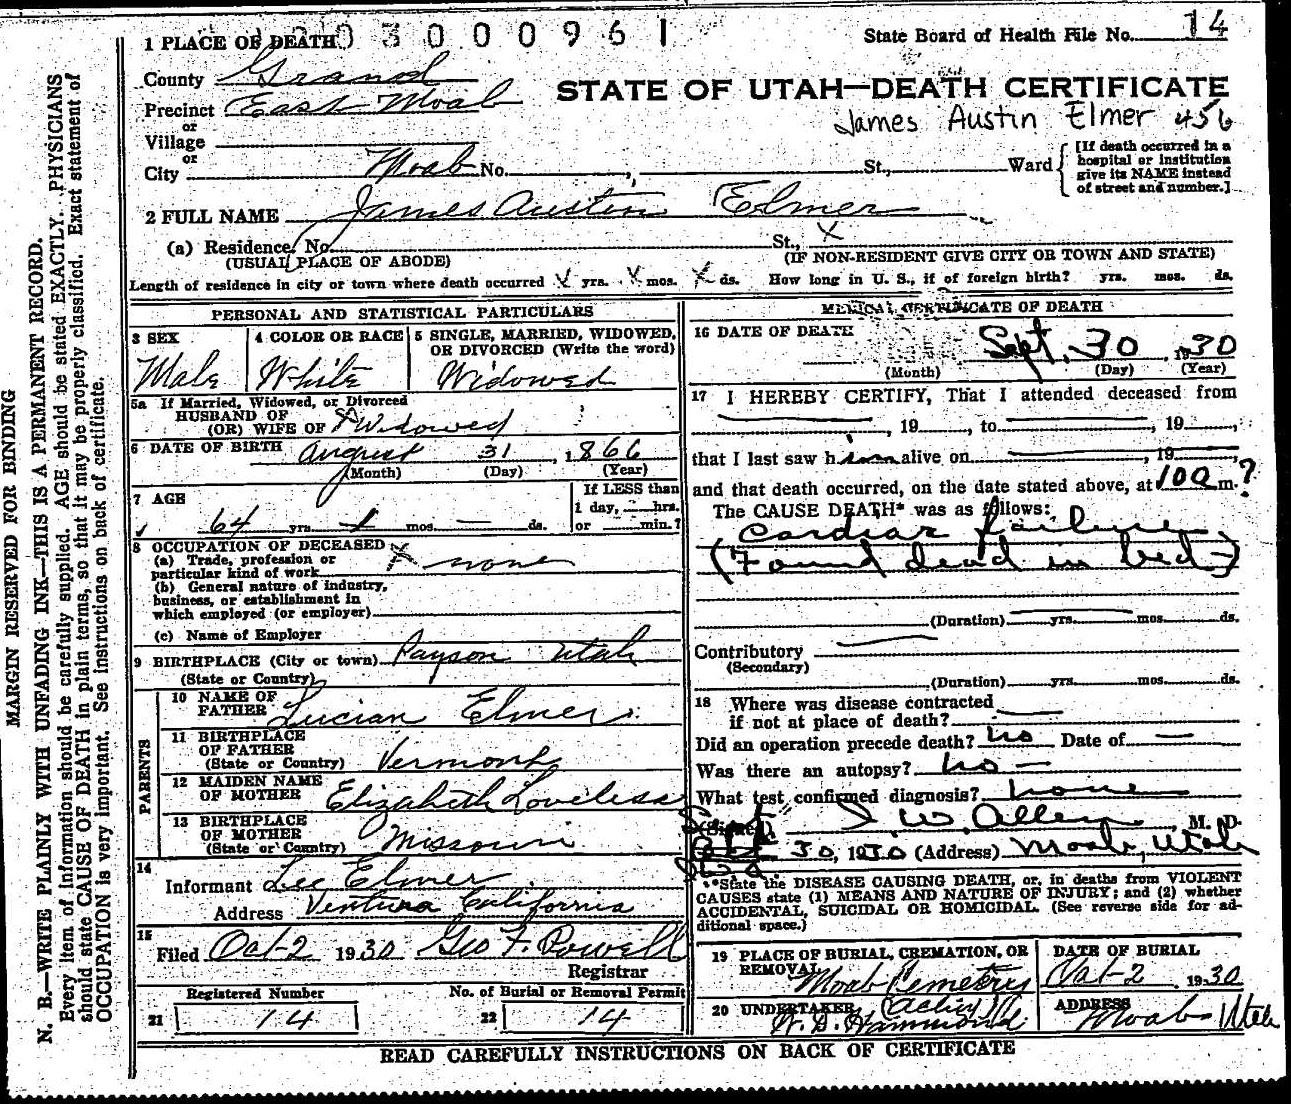 3 0 0 0 9 6 1
State Board of Health File No. 14
1 PLACE OF DEATH
County Grand
STATE OF UTAH—DEATH CERTIFICATE
Precinct East Moab
James Austin Elmer 456
or
Village
or
City Moab No. , St., Ward
[If death occurred in a hospital or institution give its NAME instead of street and number.]
2 FULL NAME James Austin Elmer
(a) Residence, No. St., X
(USUAL PLACE OF ABODE) (IF NON-RESIDENT GIVE CITY OR TOWN AND STATE)
Length of residence in city or town where death occurred X yrs. X mos. X ds. How long in U. S., if of foreign birth? yrs. mos. ds.
PERSONAL AND STATISTICAL PARTICULARS
3 SEX
Male
4 COLOR OR RACE
White
5 SINGLE, MARRIED, WIDOWED, OR DIVORCED (Write the word)
Widowed
5a If Married, Widowed, or Divorced
HUSBAND OF
(OR) WIFE OF Widowed
6 DATE OF BIRTH August 31, 1866
(Month) (Day) (Year)
7 AGE
64 yrs. 1 mos. — ds.
If LESS than
1 day, hrs.
or min.?
8 OCCUPATION OF DECEASED
(a) Trade, profession or
particular kind of work none
(b) General nature of industry,
business, or establishment in
which employed (or employer)
(c) Name of Employer
9 BIRTHPLACE (City or town) Payson Utah
(State or Country)
PARENTS
10 NAME OF
FATHER Lucian Elmer
11 BIRTHPLACE
OF FATHER
(State or Country) Vermont
12 MAIDEN NAME
OF MOTHER Elizabeth Loveless
13 BIRTHPLACE
OF MOTHER
(State or Country) Missouri
14
Informant Lee Elmer
Address Ventura California
15
Filed Oct-2 1930 Geo F. Powell
Registrar
Registered Number
21 14
No. of Burial or Removal Permit
22 14
MEDICAL CERTIFICATE OF DEATH
16 DATE OF DEATH
Sept. 30, 1930
(Month) (Day) (Year)
17 I HEREBY CERTIFY, That I attended deceased from
, 19 , to , 19 ,
that I last saw him alive on , 19 ,
and that death occurred, on the date stated above, at 100 m.?
The CAUSE DEATH* was as follows:
Cardiac failure
(Found dead in bed-)
(Duration) yrs. mos. ds.
Contributory
(Secondary)
(Duration) yrs. mos. ds.
18 Where was disease contracted
if not at place of death?
Did an operation precede death? no Date of —
Was there an autopsy? no —
What test confirmed diagnosis? none
(Signed) I. W. Allen, M. D.
Sept 30, 1930 (Address) Moab, Utah
*State the DISEASE CAUSING DEATH, or, in deaths from VIOLENT
CAUSES state (1) MEANS AND NATURE OF INJURY; and (2) whether
ACCIDENTAL, SUICIDAL OR HOMICIDAL. (See reverse side for ad-
ditional space.)
19 PLACE OF BURIAL, CREMATION, OR
REMOVAL
Moab Cemetery
DATE OF BURIAL
Oct-2, 1930
20 UNDERTAKER
W. D. Hammond
ADDRESS
Moab Utah
READ CAREFULLY INSTRUCTIONS ON BACK OF CERTIFICATE
MARGIN RESERVED FOR BINDING
N. B.—WRITE PLAINLY WITH UNFADING INK—THIS IS A PERMANENT RECORD.
Every item of information should be carefully supplied. AGE should be stated EXACTLY. PHYSICIANS
should state CAUSE OF DEATH in plain terms, so that it may be properly classified. Exact statement of
OCCUPATION is very important. See instructions on back of certificate.